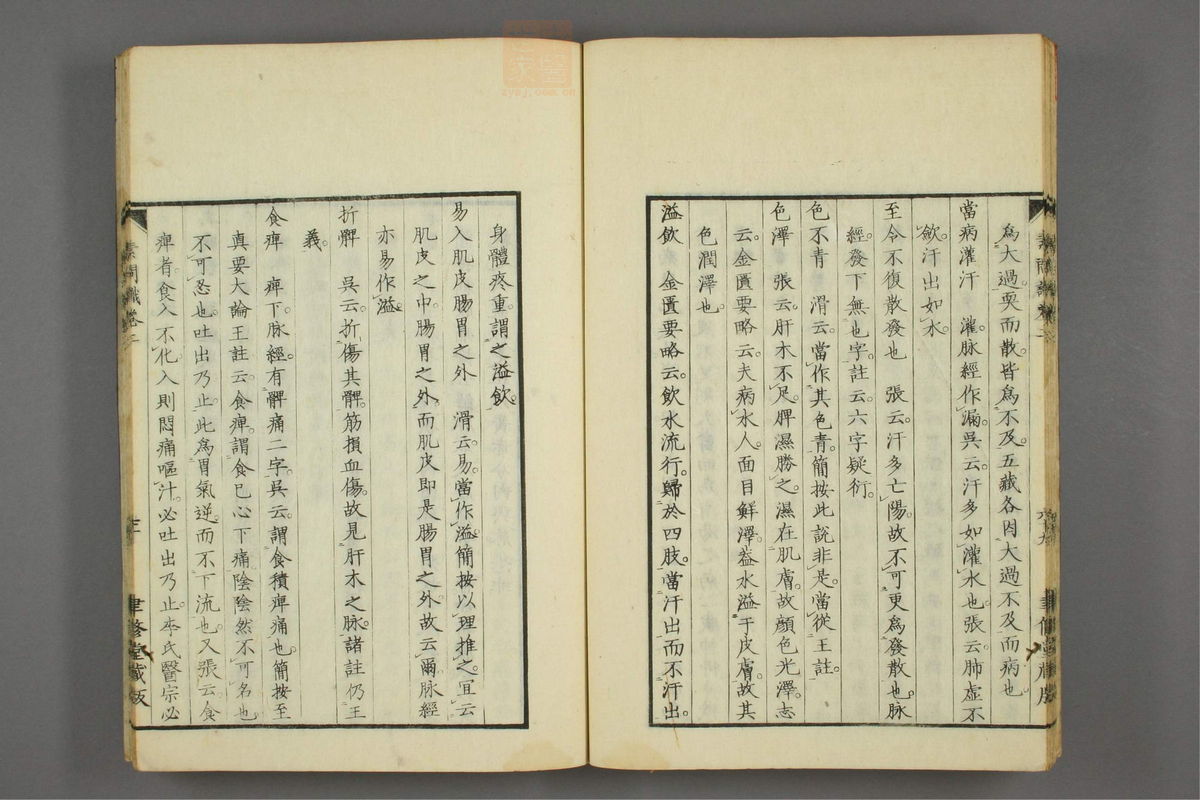 爲大過耎而散皆爲不及五藏各因大過不及而病也
當病灌汗　灌脉經作漏吳云汗多如灌水也張云肺虛不
斂汗出如水
至令不復散發也　張云汗多亡陽故不可更爲發散也脉
經發下無也字註云六字疑衍
色不青　滑云當作其色青簡按此說非是當從王註
色澤　張云肝木不足脾濕勝之濕在肌膚故顏色光澤志
云金匱要略云夫病水人面目鮮澤葢水溢于皮膚故其
色潤澤也
溢飲　金匱要略云飲水流行歸於四肢當汗出而不汗出
身體疼重謂之溢飲
易入肌皮腸胃之外　滑云易當作溢簡按以理推之宜云
肌皮之中腸胃之外而肌皮即是腸胃之外故云爾脉經
亦易作溢
折髀　吳云折傷其髀筋損血傷故見肝木之脉諸註仍王
義
食痺　痺下脉經有髀痛二字吳云謂食積痺痛也簡按至
真要大論王註云食痺謂食已心下痛陰陰然不可名也
不可忍也吐出乃止此爲胃氣逆而不下流也又張云食
痺者食入不化入則悶痛嘔汁必吐出乃止李氏醫宗必
素問識卷二
聿修堂藏版